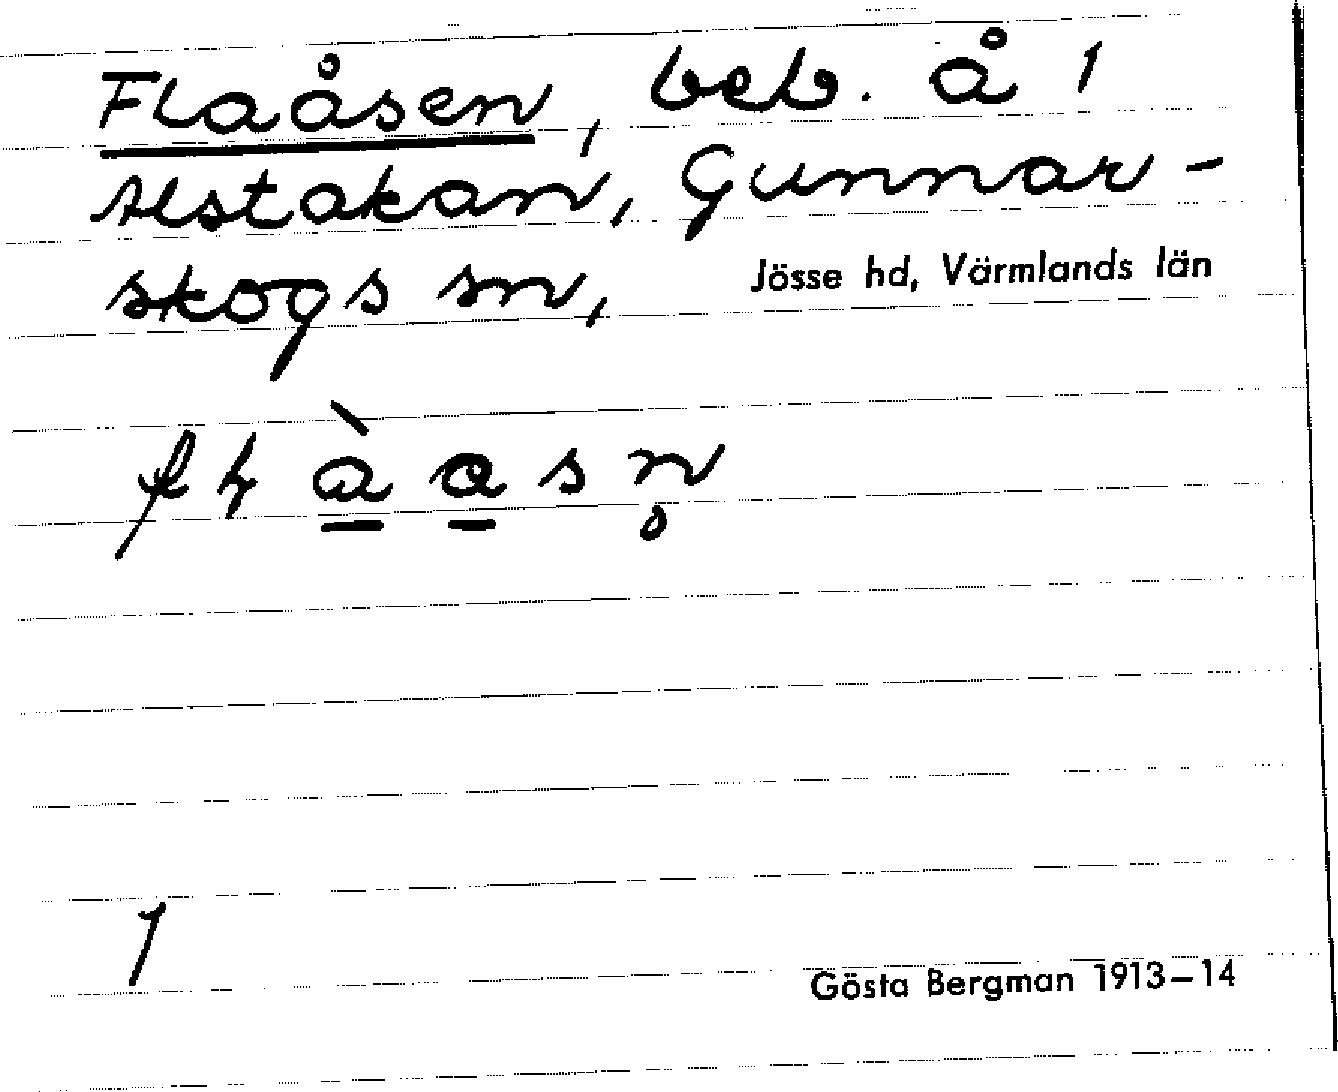 Flaåsen, beb. å 1
Ålstakan, Gunnar-
skogs sn, Jösse hd, Värmlands län
1
Gösta Bergman 1913–14